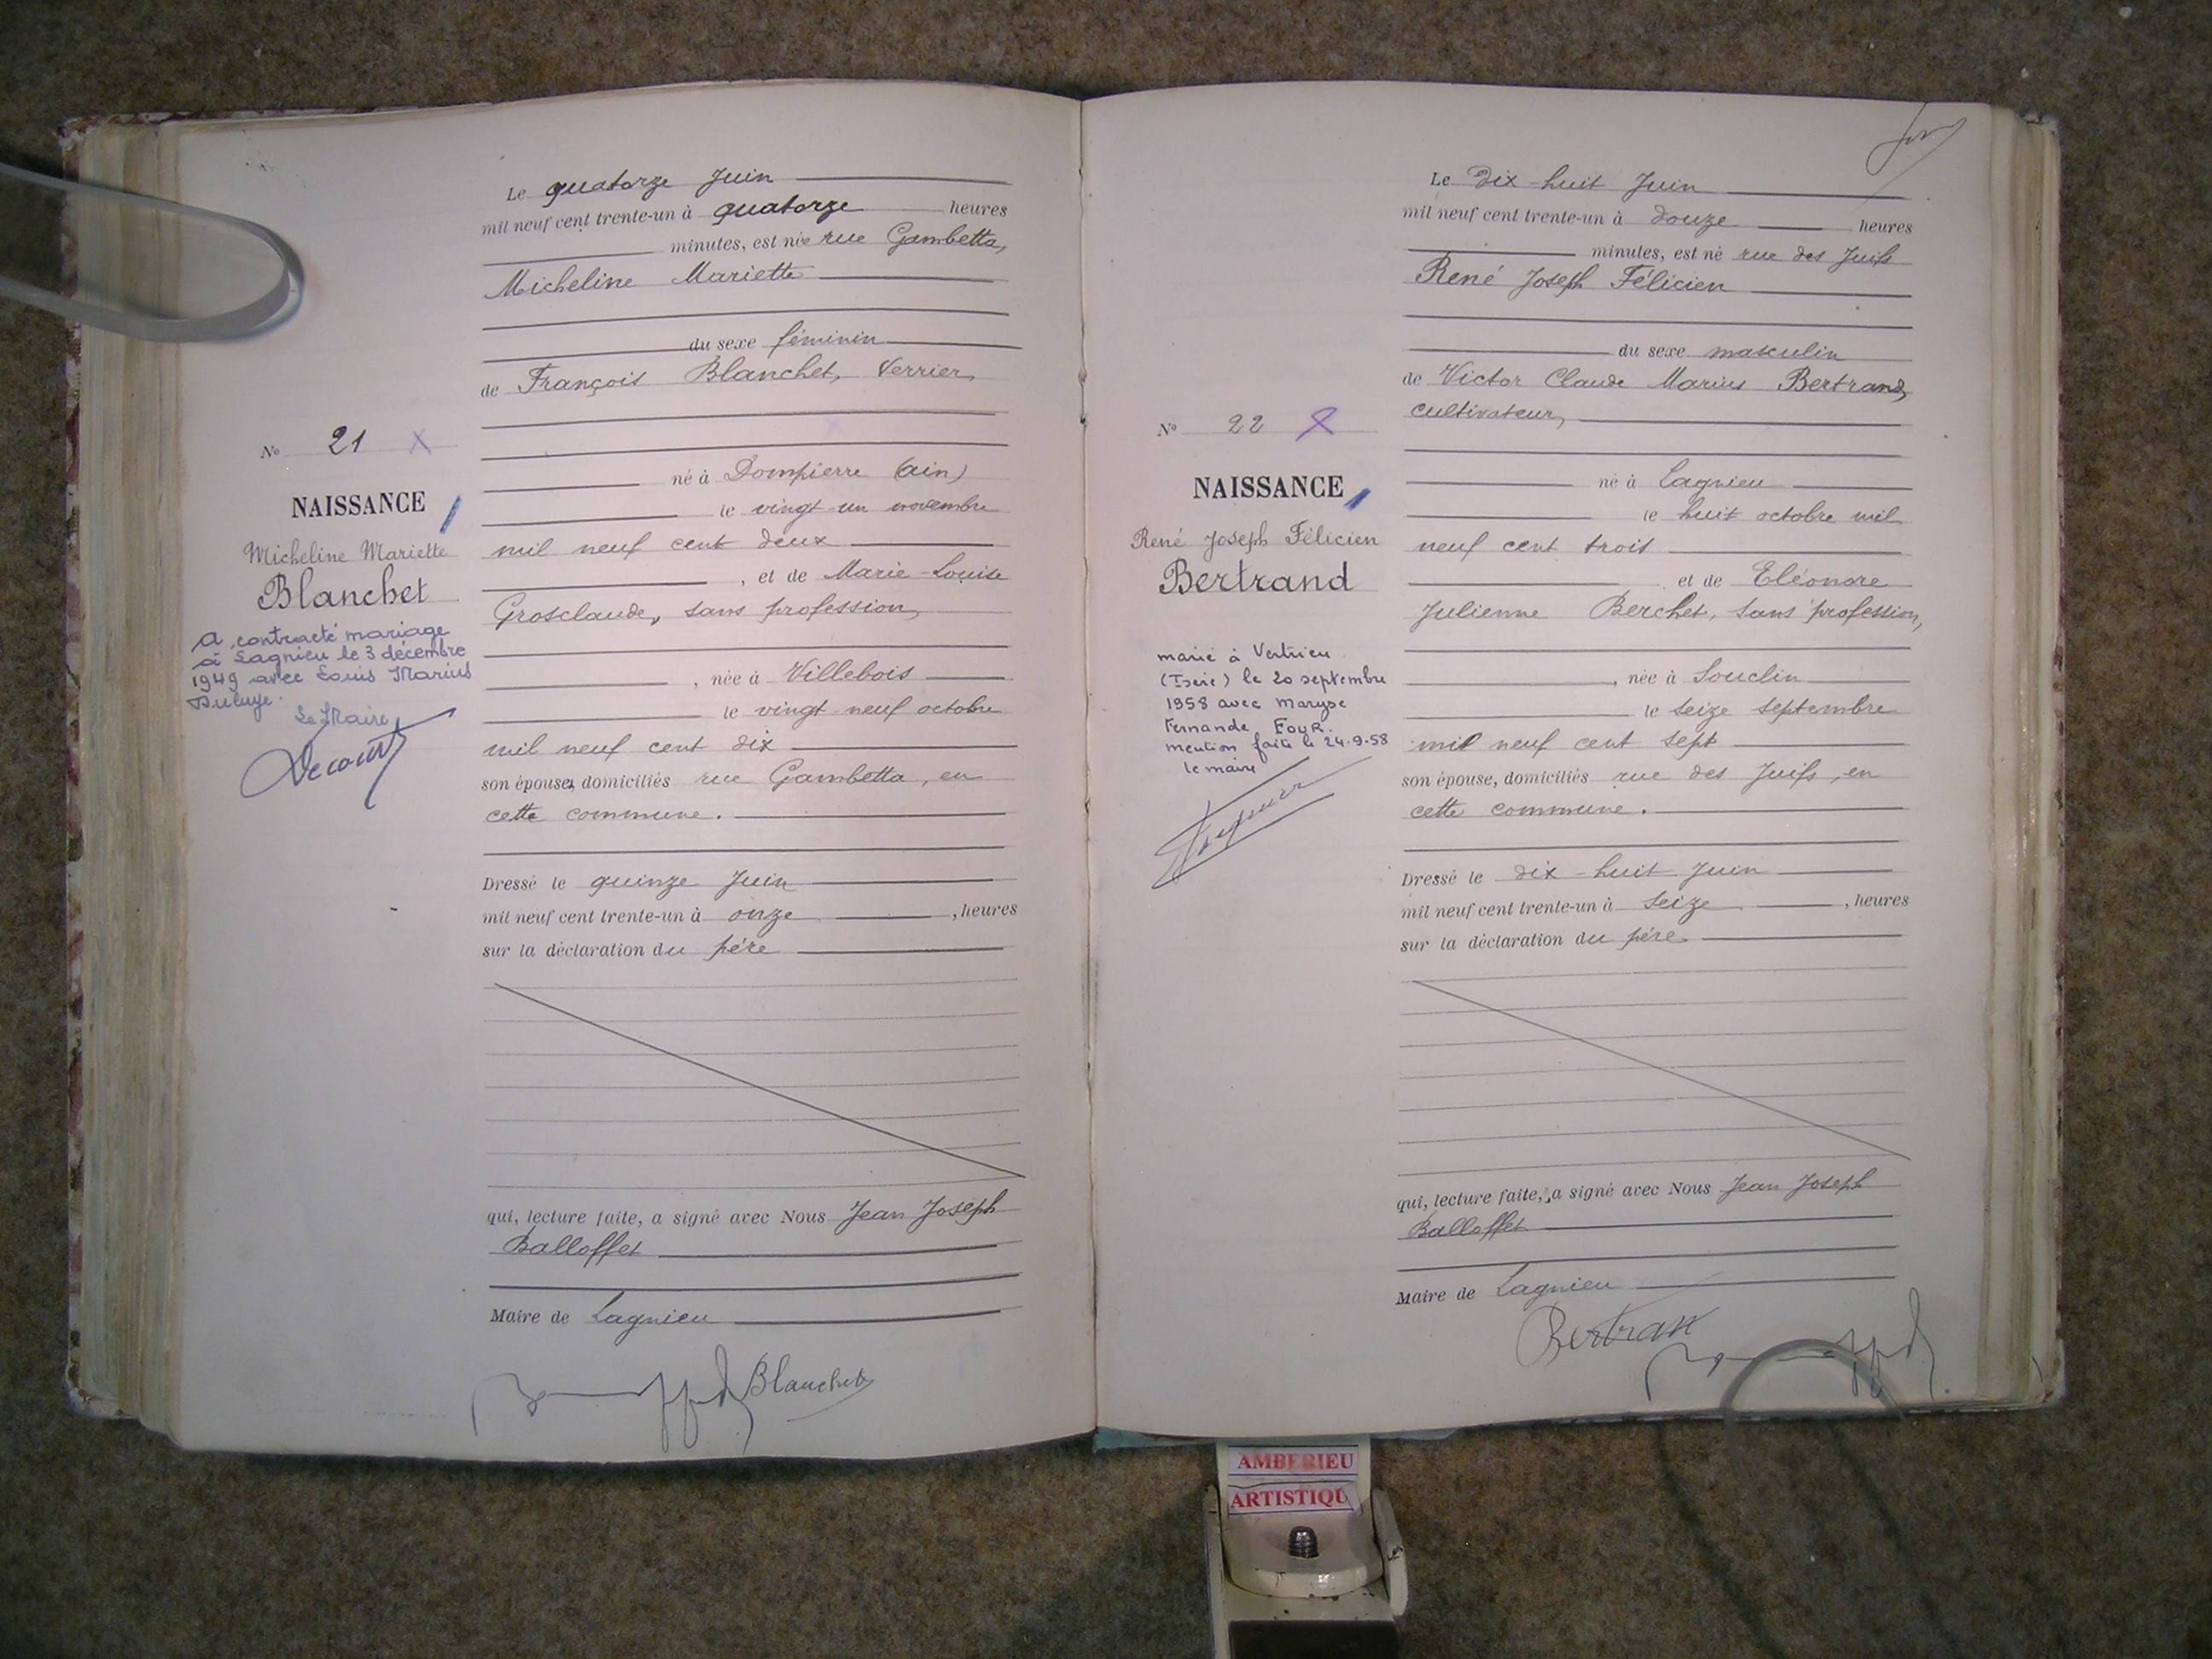 Le quatorze Juin
mil neuf cent trente-un à quatorze heures
minutes, est née rue Gambetta,
Micheline Mariette
du sexe féminin
de François Blanchet, Verrier,
né à Dompierre (Ain)
le vingt-un novembre
mil neuf cent deux
, et de Marie-Louise
Grosclaude, sans profession,
, née à Villebois
le vingt-neuf octobre
mil neuf cent dix
son épouse, domiciliés rue Gambetta, en
cette commune.
Dressé le quinze Juin
mil neuf cent trente-un à onze , heures
sur la déclaration du père
qui, lecture faite, a signé avec Nous Jean Joseph
Balloffet
Maire de Lagnieu
Blanchet
No 21
NAISSANCE
Micheline Mariette
Blanchet
A contracté mariage
à Lagnieu le 3 décembre
1949 avec Louis Marius
Le Maire,
Le Dix-huit Juin
mil neuf cent trente-un à douze heures
minutes, est né rue des Juifs
René Joseph Félicien
du sexe masculin
de Victor Claude Marius Bertrand,
cultivateur,
né à Lagnieu
le huit octobre mil
neuf cent trois
et de Eléonore
Julienne Berchet, sans profession,
, née à Souclin
le seize septembre
mil neuf cent sept
son épouse, domiciliés rue des Juifs, en
cette commune.
Dressé le dix-huit Juin
mil neuf cent trente-un à seize , heures
sur la déclaration du père
qui, lecture faite, a signé avec Nous Jean Joseph
Balloffet
Maire de Lagnieu
No 22
NAISSANCE
René Joseph Félicien
Bertrand
marié à Vertrieu
(Isère) le 20 septembre
1958 avec Maryse
Fernande FOUR.
mention faite le 24.9.58
le maire
AMBERIEU
ARTISTIQU